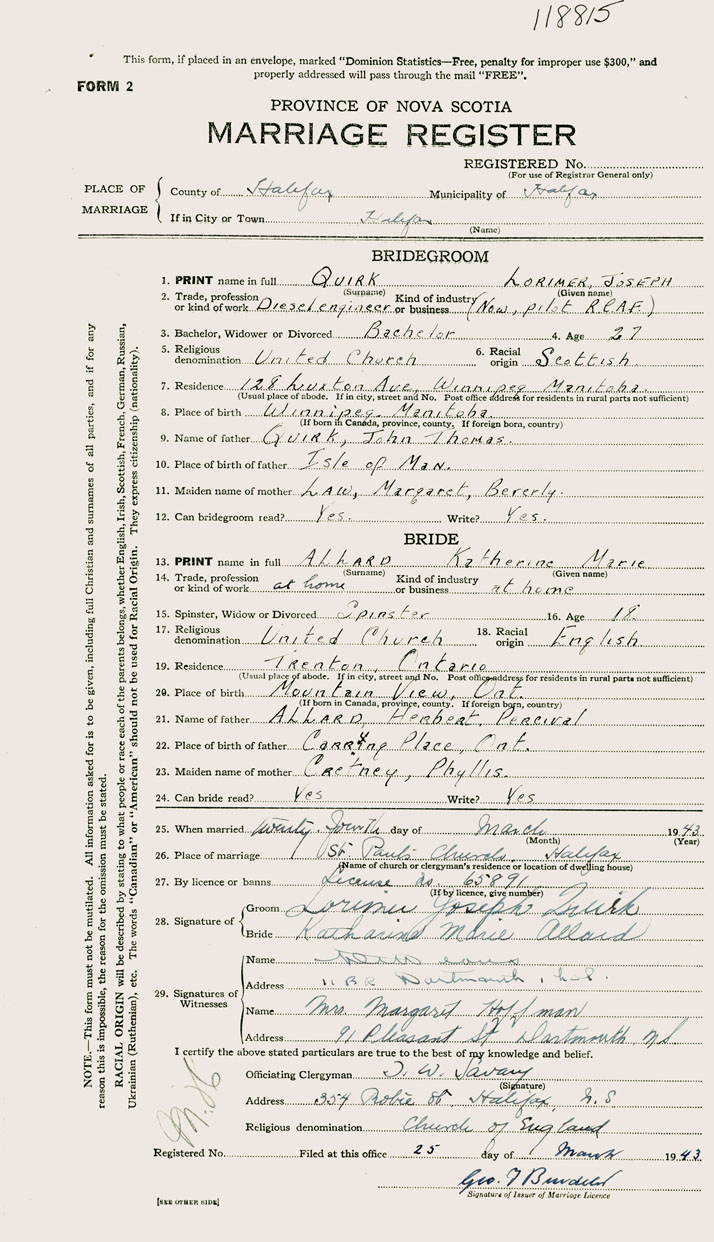 118815
This form, if placed in an envelope, marked "Dominion Statistics—Free, penalty for improper use $300," and
properly addressed will pass through the mail "FREE".
FORM 2
PROVINCE OF NOVA SCOTIA
MARRIAGE REGISTER
REGISTERED No.
(For use of Registrar General only)
PLACE OF MARRIAGE
County of Halifax Municipality of Halifax
If in City or Town Halifax
(Name)
BRIDEGROOM
1. PRINT name in full QUIRK LORIMER, JOSEPH
(Surname) (Given name)
2. Trade, profession or kind of work Diesel engineer Kind of industry or business (Now, pilot R.C.A.F.)
3. Bachelor, Widower or Divorced Bachelor 4. Age 27
5. Religious denomination United Church 6. Racial origin Scottish.
7. Residence 128 Luxton Ave, Winnipeg Manitoba.
(Usual place of abode. If in city, street and No. Post office address for residents in rural parts not sufficient)
8. Place of birth Winnipeg. Manitoba.
(If born in Canada, province, county. If foreign born, country)
9. Name of father QUIRK, John Thomas.
10. Place of birth of father Isle of Man.
11. Maiden name of mother LAW, Margaret, Beverly.
12. Can bridegroom read? Yes. Write? Yes.
BRIDE
13. PRINT name in full ALLARD Katherine Marie
(Surname) (Given name)
14. Trade, profession or kind of work at home Kind of industry or business at home
15. Spinster, Widow or Divorced Spinster 16. Age 18.
17. Religious denomination United Church 18. Racial origin English
19. Residence Trenton, Ontario
(Usual place of abode. If in city, street and No. Post office address for residents in rural parts not sufficient)
20. Place of birth Mountain View, Ont.
(If born in Canada, province, county. If foreign born, country)
21. Name of father ALLARD, Herbert, Percival
22. Place of birth of father Carrying Place, Ont.
23. Maiden name of mother Cretney, Phyllis.
24. Can bride read? Yes Write? Yes
25. When married twenty-fourth day of March 1943
(Month) (Year)
26. Place of marriage St Paul's Church, Halifax
(Name of church or clergyman's residence or location of dwelling house)
27. By licence or banns License no 65891
(If by licence, give number)
28. Signature of
Groom Lorimer Joseph Quirk
Bride Katharine Marie Allard
29. Signatures of Witnesses
Name
Address Dartmouth, N.S.
Name Mrs. Margaret Hoffman
Address 91 Pleasant St Dartmouth, N.S.
I certify the above stated particulars are true to the best of my knowledge and belief.
Officiating Clergyman T. W. Savary
(Signature)
Address 354 Robie St. Halifax, N.S
Religious denomination Church of England
Registered No. Filed at this office 25 day of March 1943
Geo. T
Signature of Issuer of Marriage Licence
[SEE OTHER SIDE]
NOTE.—This form must not be mutilated. All information asked for is to be given, including full Christian and surnames of all parties, and if for any
reason this is impossible, the reason for the omission must be stated.
RACIAL ORIGIN will be described by stating to what people or race each of the parents belongs, whether English, Irish, Scottish, French, German, Russian,
Ukrainian (Ruthenian), etc. The words "Canadian" or "American" should not be used for Racial Origin. They express citizenship (nationality).